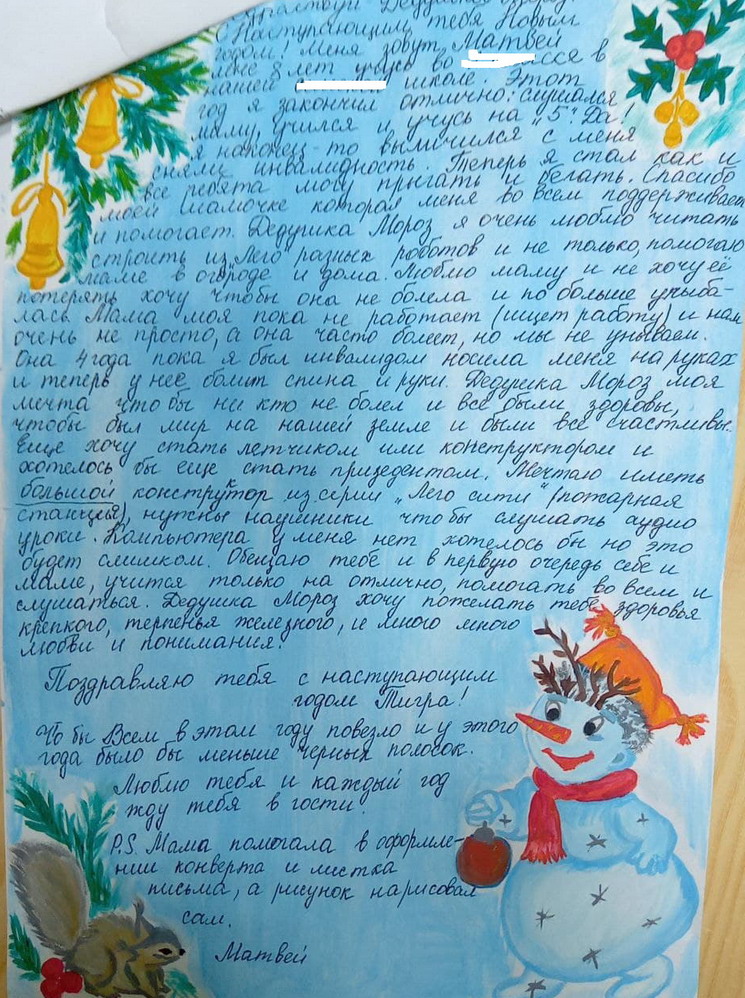 Здравствуй Дедушка Мороз!
С Наступающим тебя Новым
годом! Меня зовут Матвей
мне 8 лет учусь во
нашей школе. Этот
год я закончил отлично: слушался
маму, учился и учусь на „5". Да!
я наконец-то вылечился с меня
сняли инвалидность. Теперь я стал как и
все ребята могу прыгать и бегать. Спасибо
моей мамочке которая меня во всем поддерживает
и помогает. Дедушка Мороз я очень люблю читать
строить из „Лего" разных роботов и не только, помогаю
маме в огороде и дома. Люблю маму и не хочу её
потерять хочу чтобы она не болела и по больше улыба-
лась. Мама моя пока не работает (ищет работу) и нам
очень не просто, а она часто болеет, но мы не унываем.
Она 4 года пока я был инвалидом носила меня на руках
и теперь у неё болит спина и руки. Дедушка Мороз моя
мечта что бы ни кто не болел и все были здоровы,
чтобы был мир на нашей земле и были все счастливы.
Еще хочу стать летчиком или конструктором и
хотелось бы еще стать призедентом. Мечтаю иметь
большой конструктор из серии „Лего сити" (пожарная
станция), нужны наушники что бы слушать аудио
уроки. Компьютера у меня нет хотелось бы но это
будет слишком. Обещаю тебе и в первую очередь себе и
маме, учится только на отлично, помогать во всем и
слушаться. Дедушка Мороз хочу пожелать тебе здоровья
крепкого, терпенья железного, и много много
любви и понимания.
Поздравляю тебя с наступающим
годом Тигра!
Что бы Всем в этом году повезло и у этого
года было бы меньше черных полосок.
Люблю тебя и каждый год
жду тебя в гости.
P.S. Мама помогала в оформле-
нии конверта и листка
письма, а рисунок нарисовал
сам.
Матвей